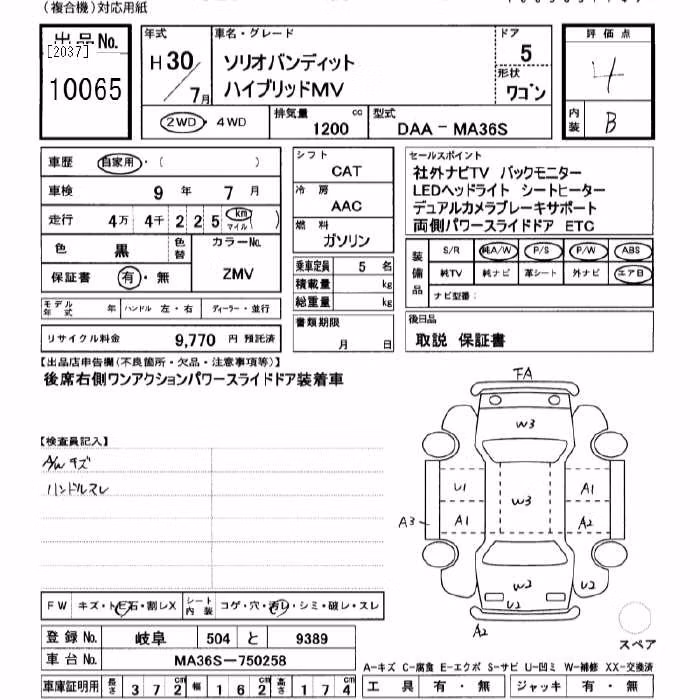 (複合機)対応用紙
出品No.
[2037]
10065
年式
H30/7月
車名・グレード
ソリオバンディット
ハイブリッドMV
ドア
5
形状
ワゴン
評価点
4
内装
B
2WD・4WD
排気量
1200 cc
型式
DAA－MA36S
車歴 自家用・( )
車検 9 年 7 月
走行 4万 4千 2 2 5 km マイル ( )
色 黒 色替
カラーNo.
ZMV
保証書 有・無
モデル年式 年 ハンドル 左・右 ディーラー・並行
リサイクル料金 9,770 円 預託済
シフト
CAT
冷房
AAC
燃料
ガソリン
乗車定員 5 名
積載量 kg
総重量 kg
書類期限
月 日
セールスポイント
社外ナビTV バックモニター
LEDヘッドライト シートヒーター
デュアルカメラブレーキサポート
両側パワースライドドア ETC
装備品
S/R 純A/W P/S P/W ABS
純TV 純ナビ 革シート 外ナビ エアB
ナビ型番:
後日品
取説 保証書
【出品店申告欄(不良箇所・欠品・注意事項等)】
後席右側ワンアクションパワースライドドア装着車
【検査員記入】
A/W キズ
ハンドルスレ
FA
W3
U1
W3
A1
A3
A1
A2
W2
U2
U2
A2
スペア
FW キズ・トビ石・割レX
シート内装 コゲ・穴・汚レ・シミ・破レ・スレ
登録No. 岐阜 504 と 9389
車台No. MA36S－750258
車庫証明用 長さ 3 7 2 cm 幅 1 6 2 cm 高さ 1 7 4 cm
A−キズ C−腐食 E−エクボ S−サビ U−凹ミ W−補修 XX−交換済
工具 有・無 ジャッキ 有・無